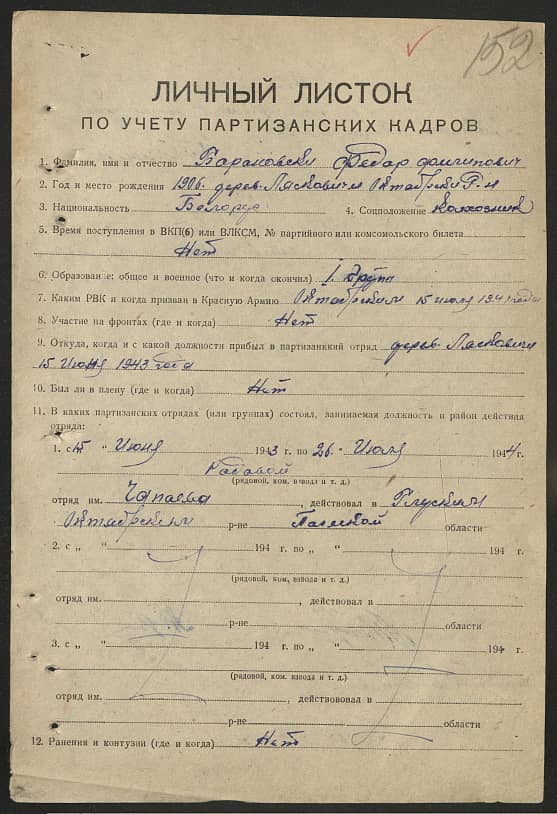 152
ЛИЧНЫЙ ЛИСТОК
ПО УЧЕТУ ПАРТИЗАНСКИХ КАДРОВ
1. Фамилия, имя и отчество Барановски Федар
2. Год и место рождения 1906. дерев. Ляскавичи Октабрски Р-н
3. Национальность 4. Соцположение колхозник
5. Время поступления в ВКП(б) или ВЛКСМ, № партийного или комсомольского билета
Нет
6. Образование: общее и военное (что и когда окончил) 1. група
7. Каким РВК и когда призван в Красную Армию Октабрским 15 июля 1941 года
8. Участие на фронтах (где и когда) Нет
9. Откуда, когда и с какой должности прибыл в партизанкий отряд дерев. Ляскавичи
15 Июня 1943 года
10. Был ли в плену (где и когда) Нет
11. В каких партизанских отрядах (или группах) состоял, занимаемая должность и район действия
отряда:
1. с 15 " Июня 1943 г. по 26 " Июля 1944 г.
Радавой
(рядовой, ком. взвода и т. д.)
отряд им. Чапаева, действовал в Глуским
Октабрским р-не Палеской области
2. с „ " 194 г. по „ " 194 г.
(рядовой, ком, взвода и т. д.)
отряд им. , действовал в
р-не области
3. с „ " 194 г. по „ " 194 г.
(рядовой, ком. взвода и т. д.)
отряд им. , действововал в
р-не области
12. Ранения и контузии (где и когда) Нет